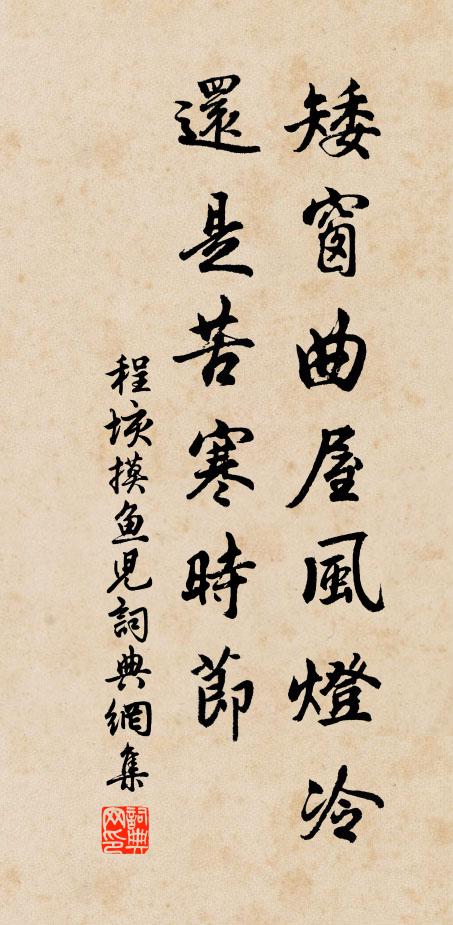 矮窗曲屋風燈冷
還是苦寒時節
程垓摸魚兒詞典網集
詞典网印